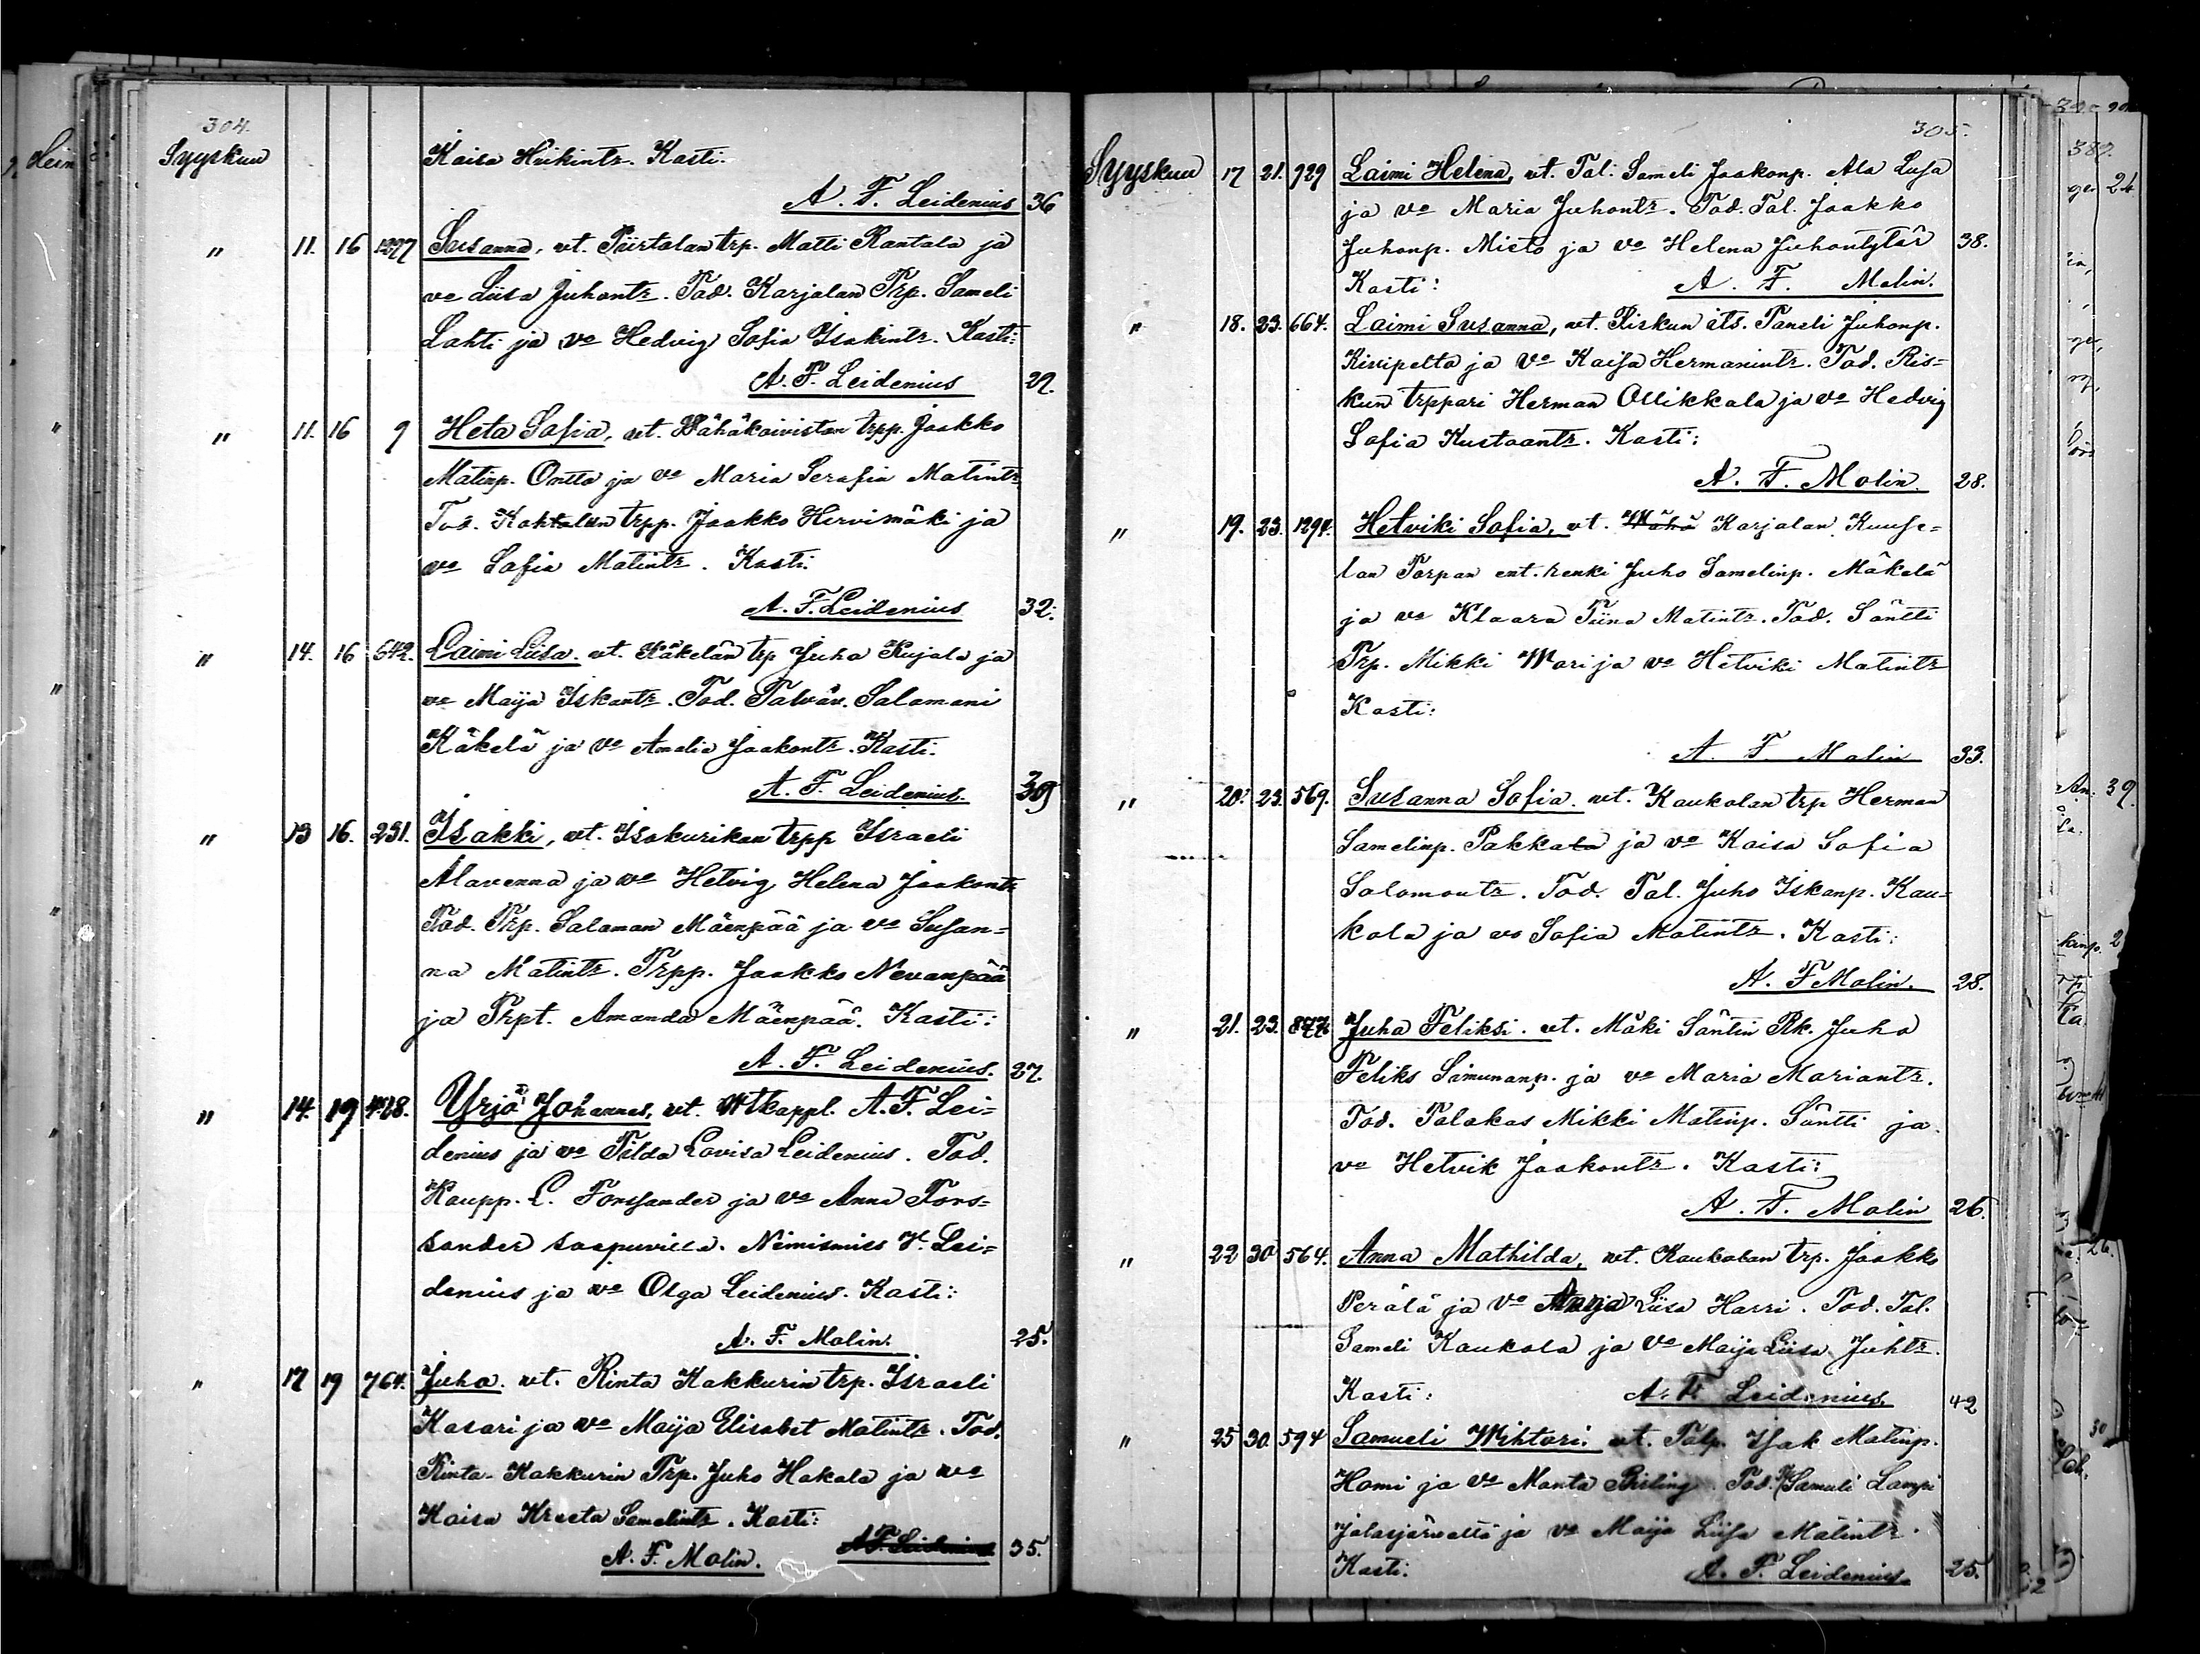 304.
Syyskuu Kaisa Heikintr. Kasti.
A. F. Leidenius 36
" 11. 16 1297 Susanna, vt. Piirtolan trp. Matti Rantala ja
vo Liisa Juhontr. Tod. Karjalan Trp. Sameli
Lahti ja vo Hedvig Sofia Isakintr. Kasti:
A. F. Leidenius 29.
" 11. 16 9 Heta Sofia, vt. Wähäkoiviston trpp. Jaakko
Matinp. Ontto ja vo Maria Serafia Matintr
Tod. Kohtalan trpp. Jaakko Hervismäki ja
vo Sofia Matintr. Kasti:
A. F. Leidenius 32.
" 14. 16 542. Laimi Liisa. vt. Käkelän trp Juha Kujala ja
vo Maija Iskantr. Tod. Talvän. Salamani
Käkelä ja vo Amalia Jaakontr. Kasti.
A. F. Leidenius. 39
" 13 16. 231. Isakki, vt. Isokurikan trpp Israeli
Alavenna ja vo Hetvig Helena Jaakontr
Tod. Trp. Salaman Mäenpää ja vo Susan=
na Matintr. Trpp. Jaakko Nevanpää
ja Trpt. Amanda Mäenpää. Kasti:
A. F. Leidenius. 27.
" 14. 19 428. Yrjö Johannes, vt. Wtkappl. A. F. Lei=
denius ja vo Tilda Lovisa Leidenius. Tod.
Kaupp. L. Forssander ja vo Anna Fors=
sander saapuvilla. Nimismies K. Lei=
denius ja vo Olga Leidenius. Kasti:
A. F. Malin. 25.
" 17 19 764. Juha. vt. Rinta Kakkurin trp. Israeli
Kasari ja vo Maija Elisabet Matintr. Tod.
Rinta-Kakkurin Trp. Juho Hakala ja vo
Kaisa Kreeta Samelintr. Kasti:
A. F. Malin. A F Leidenius 35.
305.
Syyskuu 17 21. 929 Laimi Helena, vt. Tal: Sameli Jaakonp. Ala Lusa
ja vo Maria Juhontr. Tod. Tal. Jaakko
Juhonp. Misto ja vo Helena Juhontytär 38.
Kasti: A. F. Malin.
" 18. 23. 664. Laimi Susanna, vt. Riskun its. Taneli Juhonp.
Kivipelto ja vo Kaisa Hermanintr. Tod. Ris=
kun trppari Herman Ollikkala ja vo Hedvig
Sofia Kustaantr. Kasti:
A. F. Malin. 28.
" 19. 23. 1294. Hetviki Sofia, vt. Wähä Karjalan Kuuse=
lan Torpan ent. renki Juho Samelinp. Mäkelä
ja vo Klaara Tiina Matintr. Tod. Säntti
Trp. Mikki Wari ja vo Hetviki Matintr
Kasti:
A. F. Malin 33.
" 20. 23. 569. Susanna Sofia. vt. Kaukolan trp Herman
Samelinp. Pakkala ja vo Kaisa Sofia
Salomontr. Tod. Tal. Juho Iskanp. Kau=
kola ja vo Sofia Matintr. Kasti:
A. F Malin. 28.
" 21. 23. 877 Juha Feliksi. vt. Mäki Säntin Rk. Juha
Feliks Simunanp. ja vo Maria Mariantr.
Tod. Talakas Mikki Matinp. Säntti ja
vo Hetvik Jaakontr. Kasti:
A. F. Malin 26.
" 22 30 564. Anna Mathilda, vt. Kaukolan trp. Jaakko
Perälä ja vo Liisa Harri. Tod. Tal.
Sameli Kaukola ja vo Maija Liisa Juhtr.
Kasti: A. F. Leidenius. 42
" 25 30. 594 Samueli Wihtori. vt. Talp. Isak Matinp.
Homi ja vo Manta Tod. Samuli Lampi
Jalasjärveltä ja vo Maija Liisa Matintr.
Kasti. A. F. Leidenius. 25.